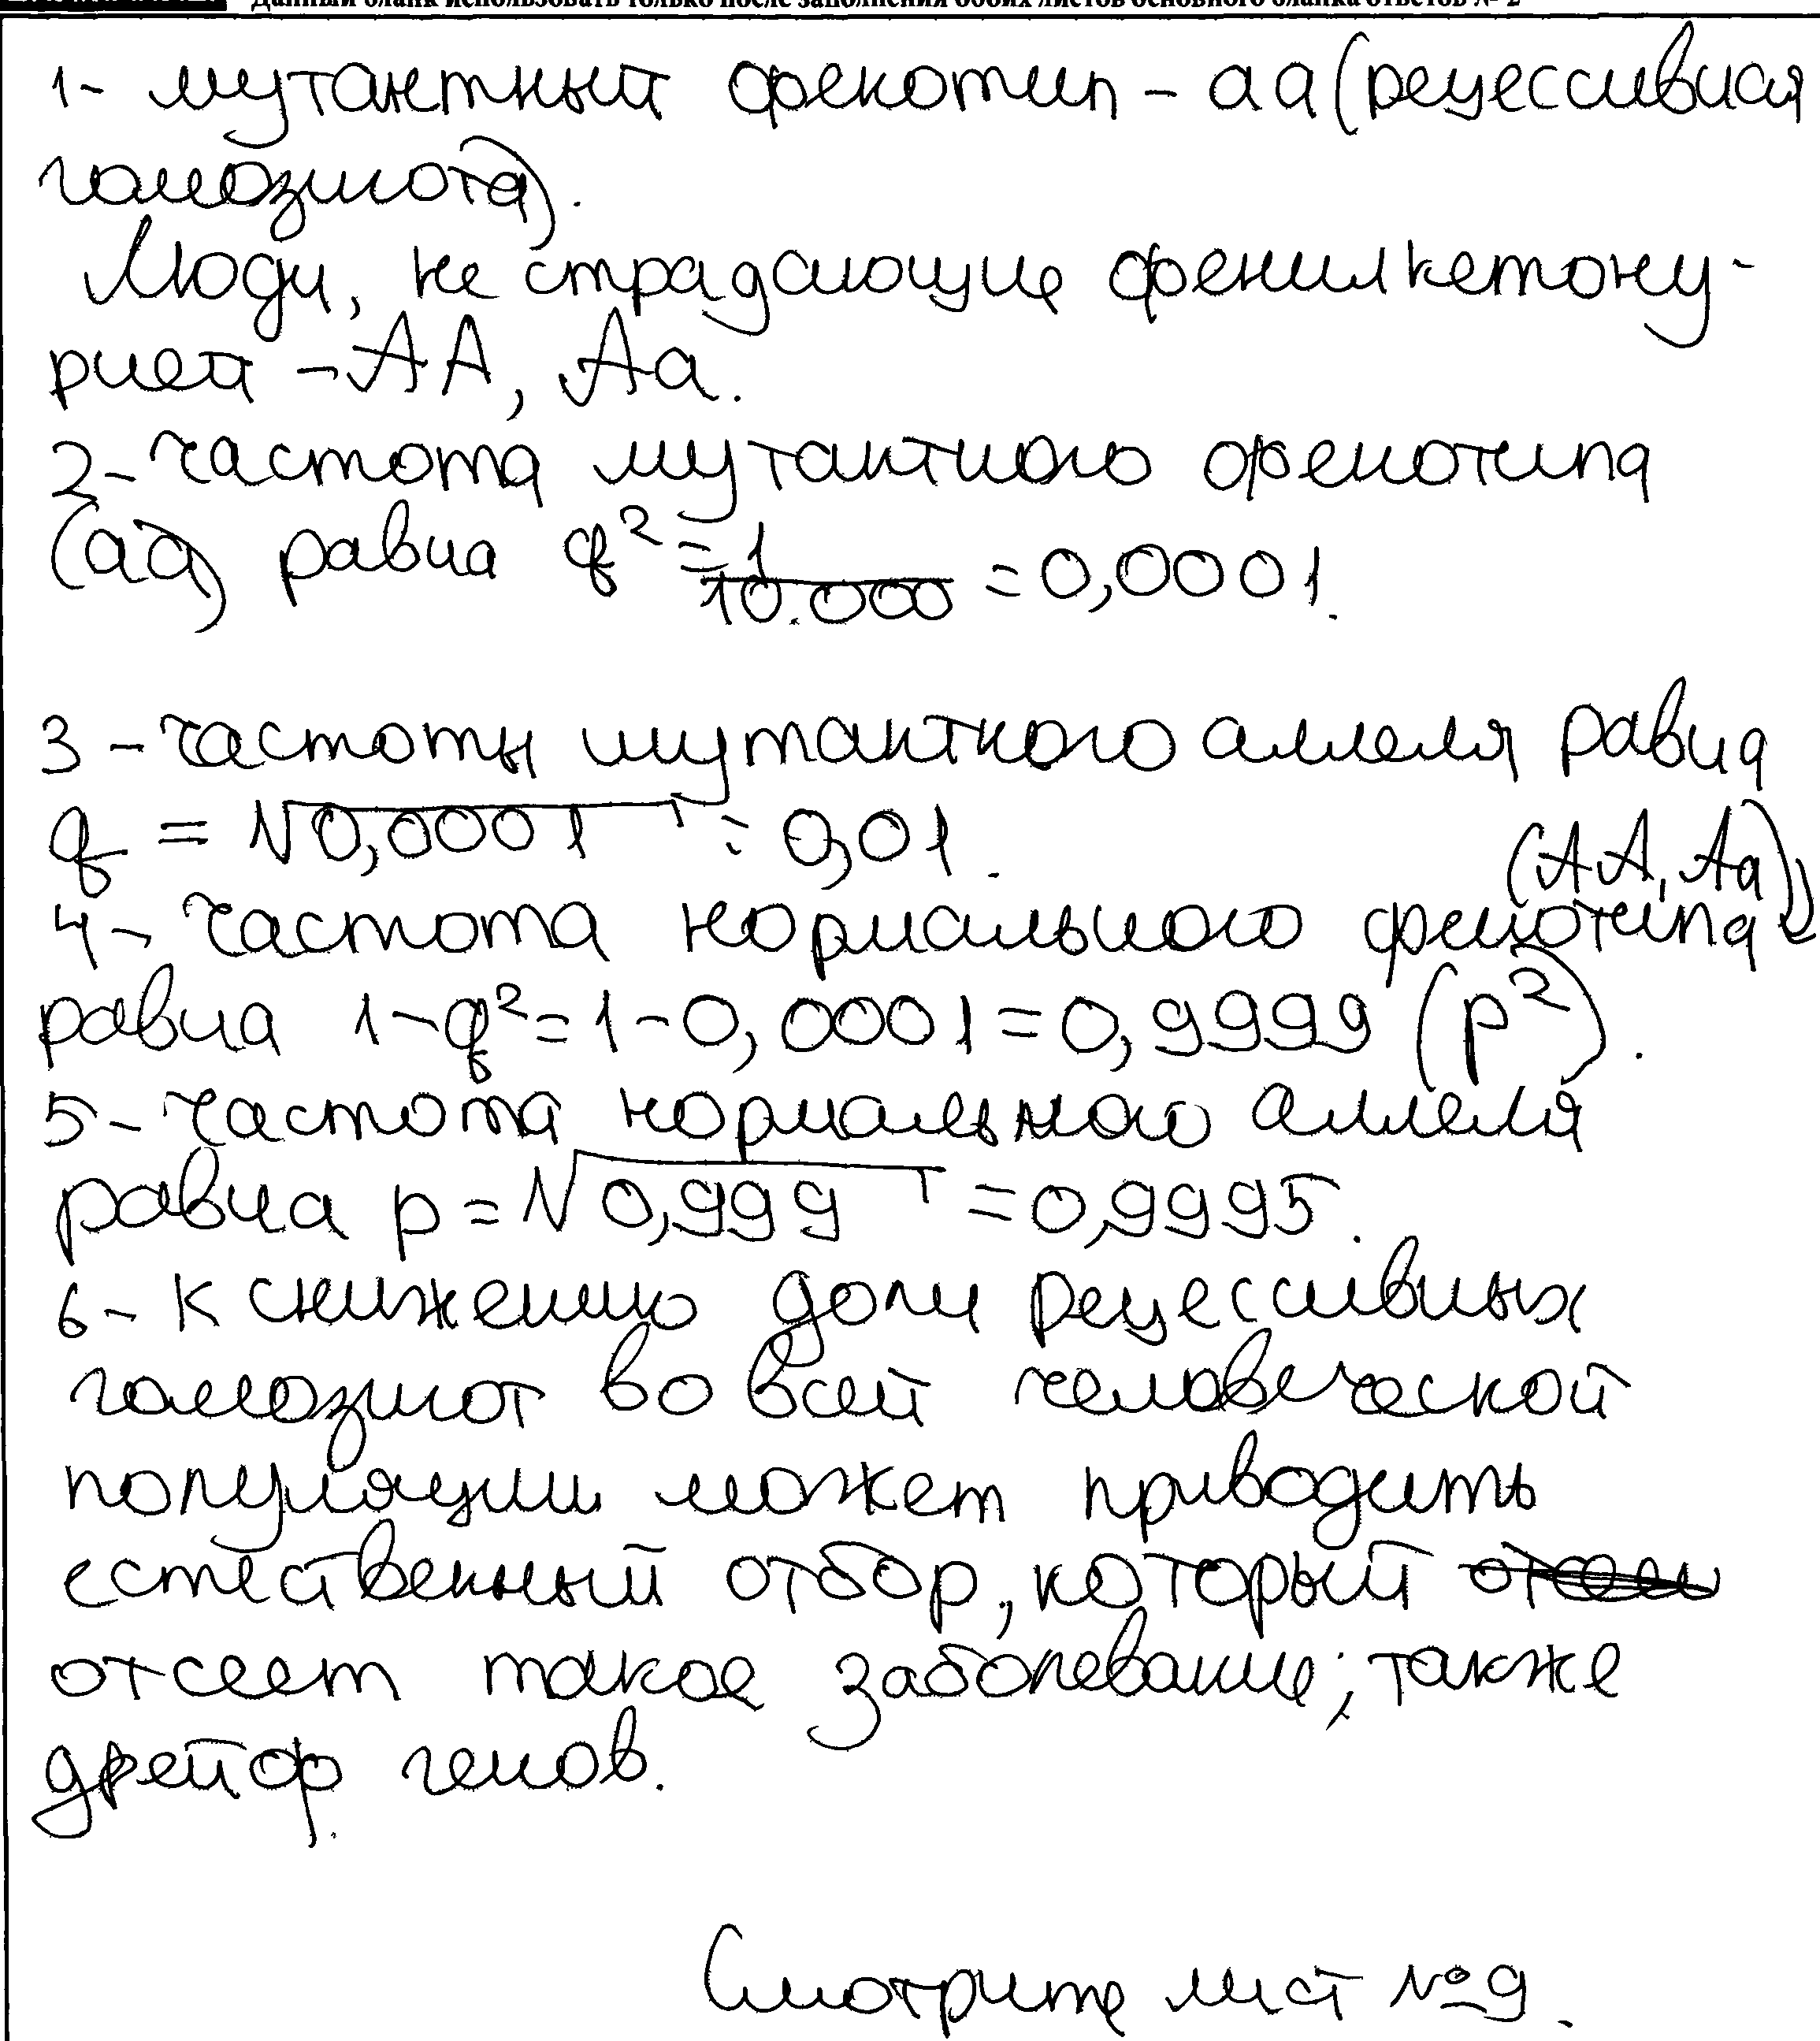 Данный бланк использовать только после заполнения обоих листов основного бланка ответов № 2
1- мутантный фенотип - аа (рецессивная
гомозигота).
Люди, не страдающие фенилкетону-
рией - АА, Аа.
2- частота мутантного фенотипа
(аа) равна q² = 1/10.000 = 0,0001.
3 - частоты мутантного аллеля равна
q = √0,0001 = 0,01.
4 - частота нормального фенотипа (АА, Аа)
равна 1-q² = 1-0,0001 = 0,9999 (p²).
5 - частота нормального аллеля
равна p = √0,999 = 0,9995.
6 - к снижению доли рецессивных
гомозигот во всей человеческой
популяции может приводить
естественный отбор, который
отсеет такое заболевание; также
дрейф генов.
Смотрите лист №9.